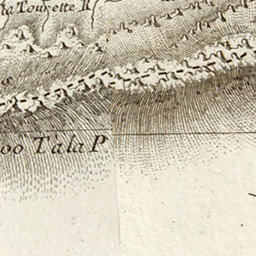 ta Tourette R
oo Tala P